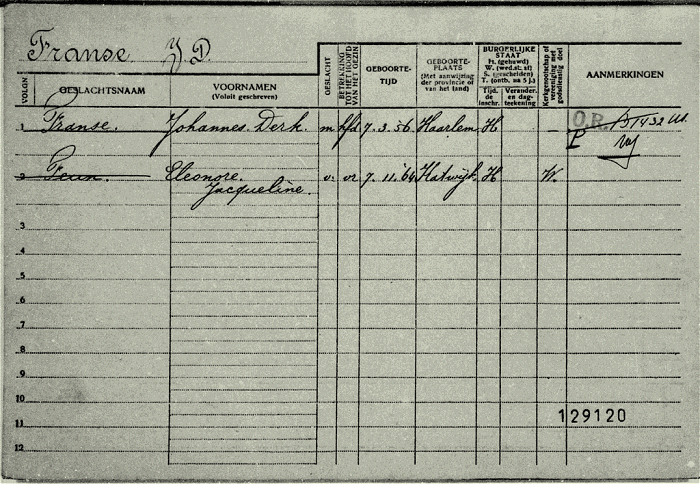 Franse J. D.
VOLGN.
GESLACHTSNAAM
VOORNAMEN
(Voluit geschreven)
GESLACHT
BETREKKING TOT HET HOOFD VAN HET GEZIN
GEBOORTE-
TIJD
GEBOORTE-
PLAATS
(Met aanwijzing
der provincie of
van het land)
BURGERLIJKE
STAAT
H. (gehuwd)
W. (wed.st. st)
S. (gescheiden)
T. (ontb. na 5 j.)
Tijd.
de
inschr.
Verander.
en dag-
teekening
Kerkgenootschap of
vereeniging met
godsdienstig doel
AANMERKINGEN
1 Franse. Johannes Derk. m hfd 7.3.'56 Haarlem H — O.R. 1932
P
2 Eleonore. v. vr 7.11.'64 Katwijk H W.
Jacqueline.
3
4
5
6
7
8
9
10
129120
11
12